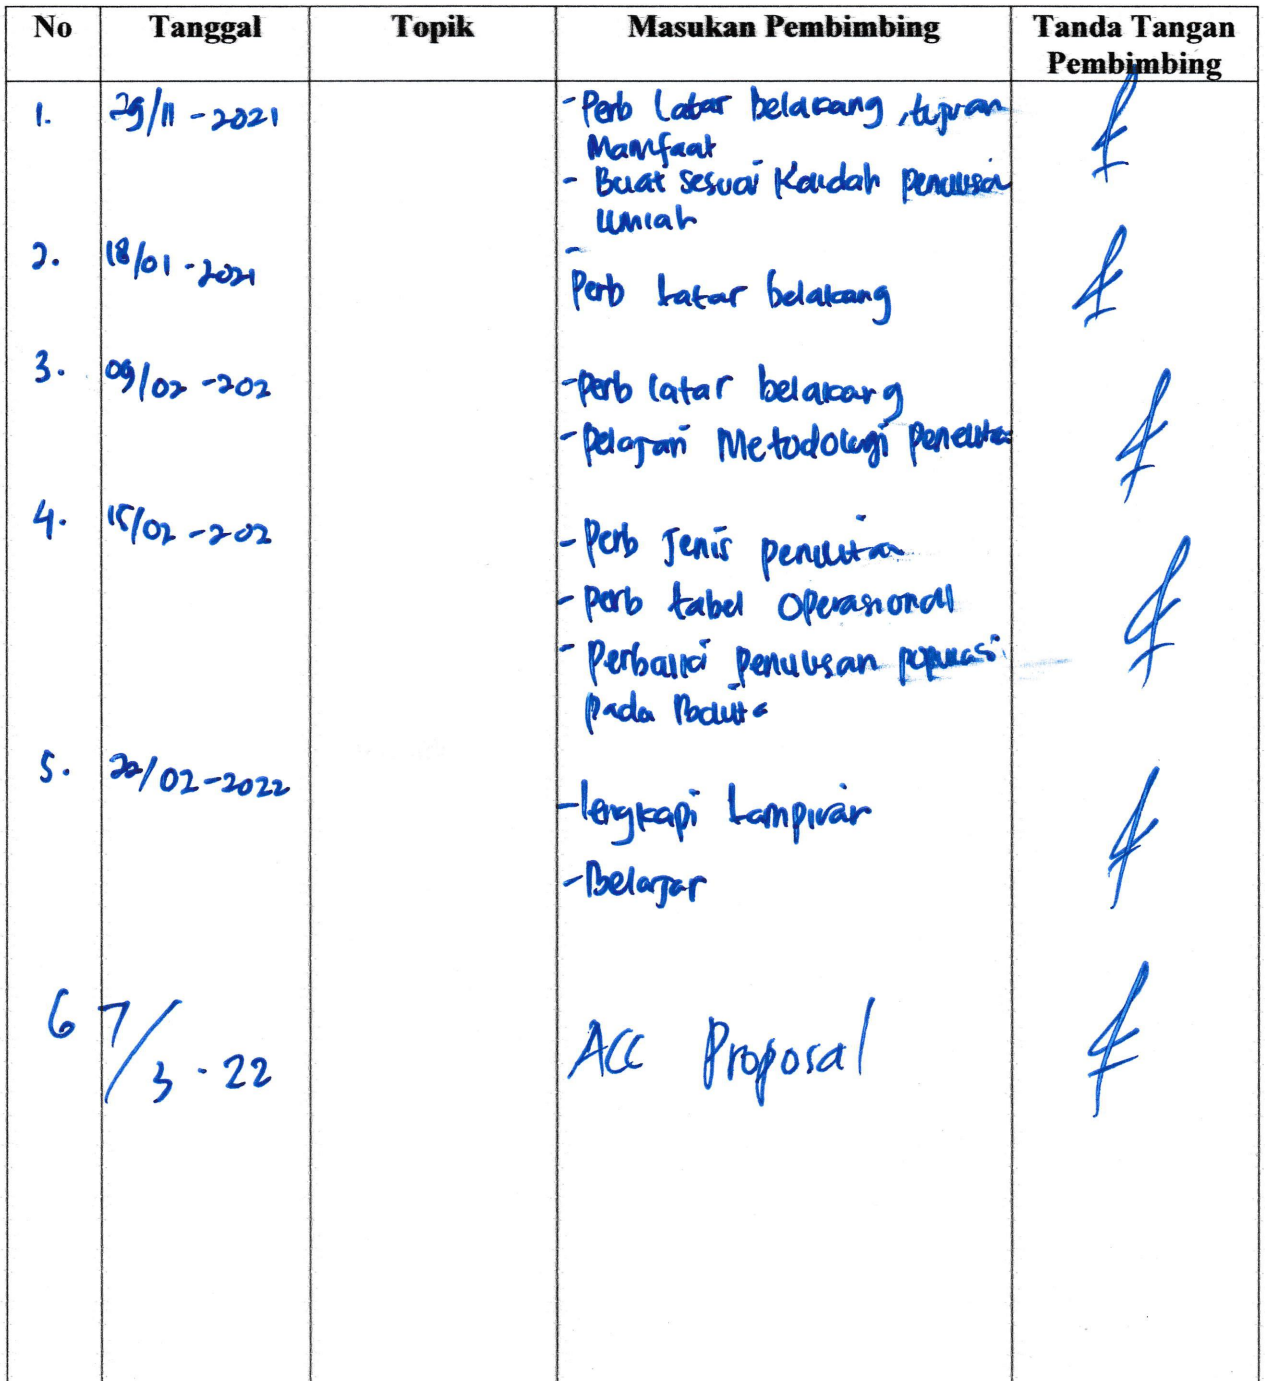 No Tanggal Topik Masukan Pembimbing Tanda Tangan Pembimbing
1. 29/11 - 2021 - Perb Latar belakang, tujuan
Mamfaat
- Buat sesuai Kaidah penulisan
ilmiah
2. 18/01 - 2021 -
Perb Latar belakang
3. 09/02 - 202 - Perb latar belakang
- pelajari Metodologi penelitia
4. 15/02 - 202
- Perb Jenis penelitian
- perb tabel Operasional
- Perbaiki penulisan populasi
pada
5. 22/02 - 2022
- lengkapi Lampiran
- Belajar
6 7/3 - 22 ACC Proposal